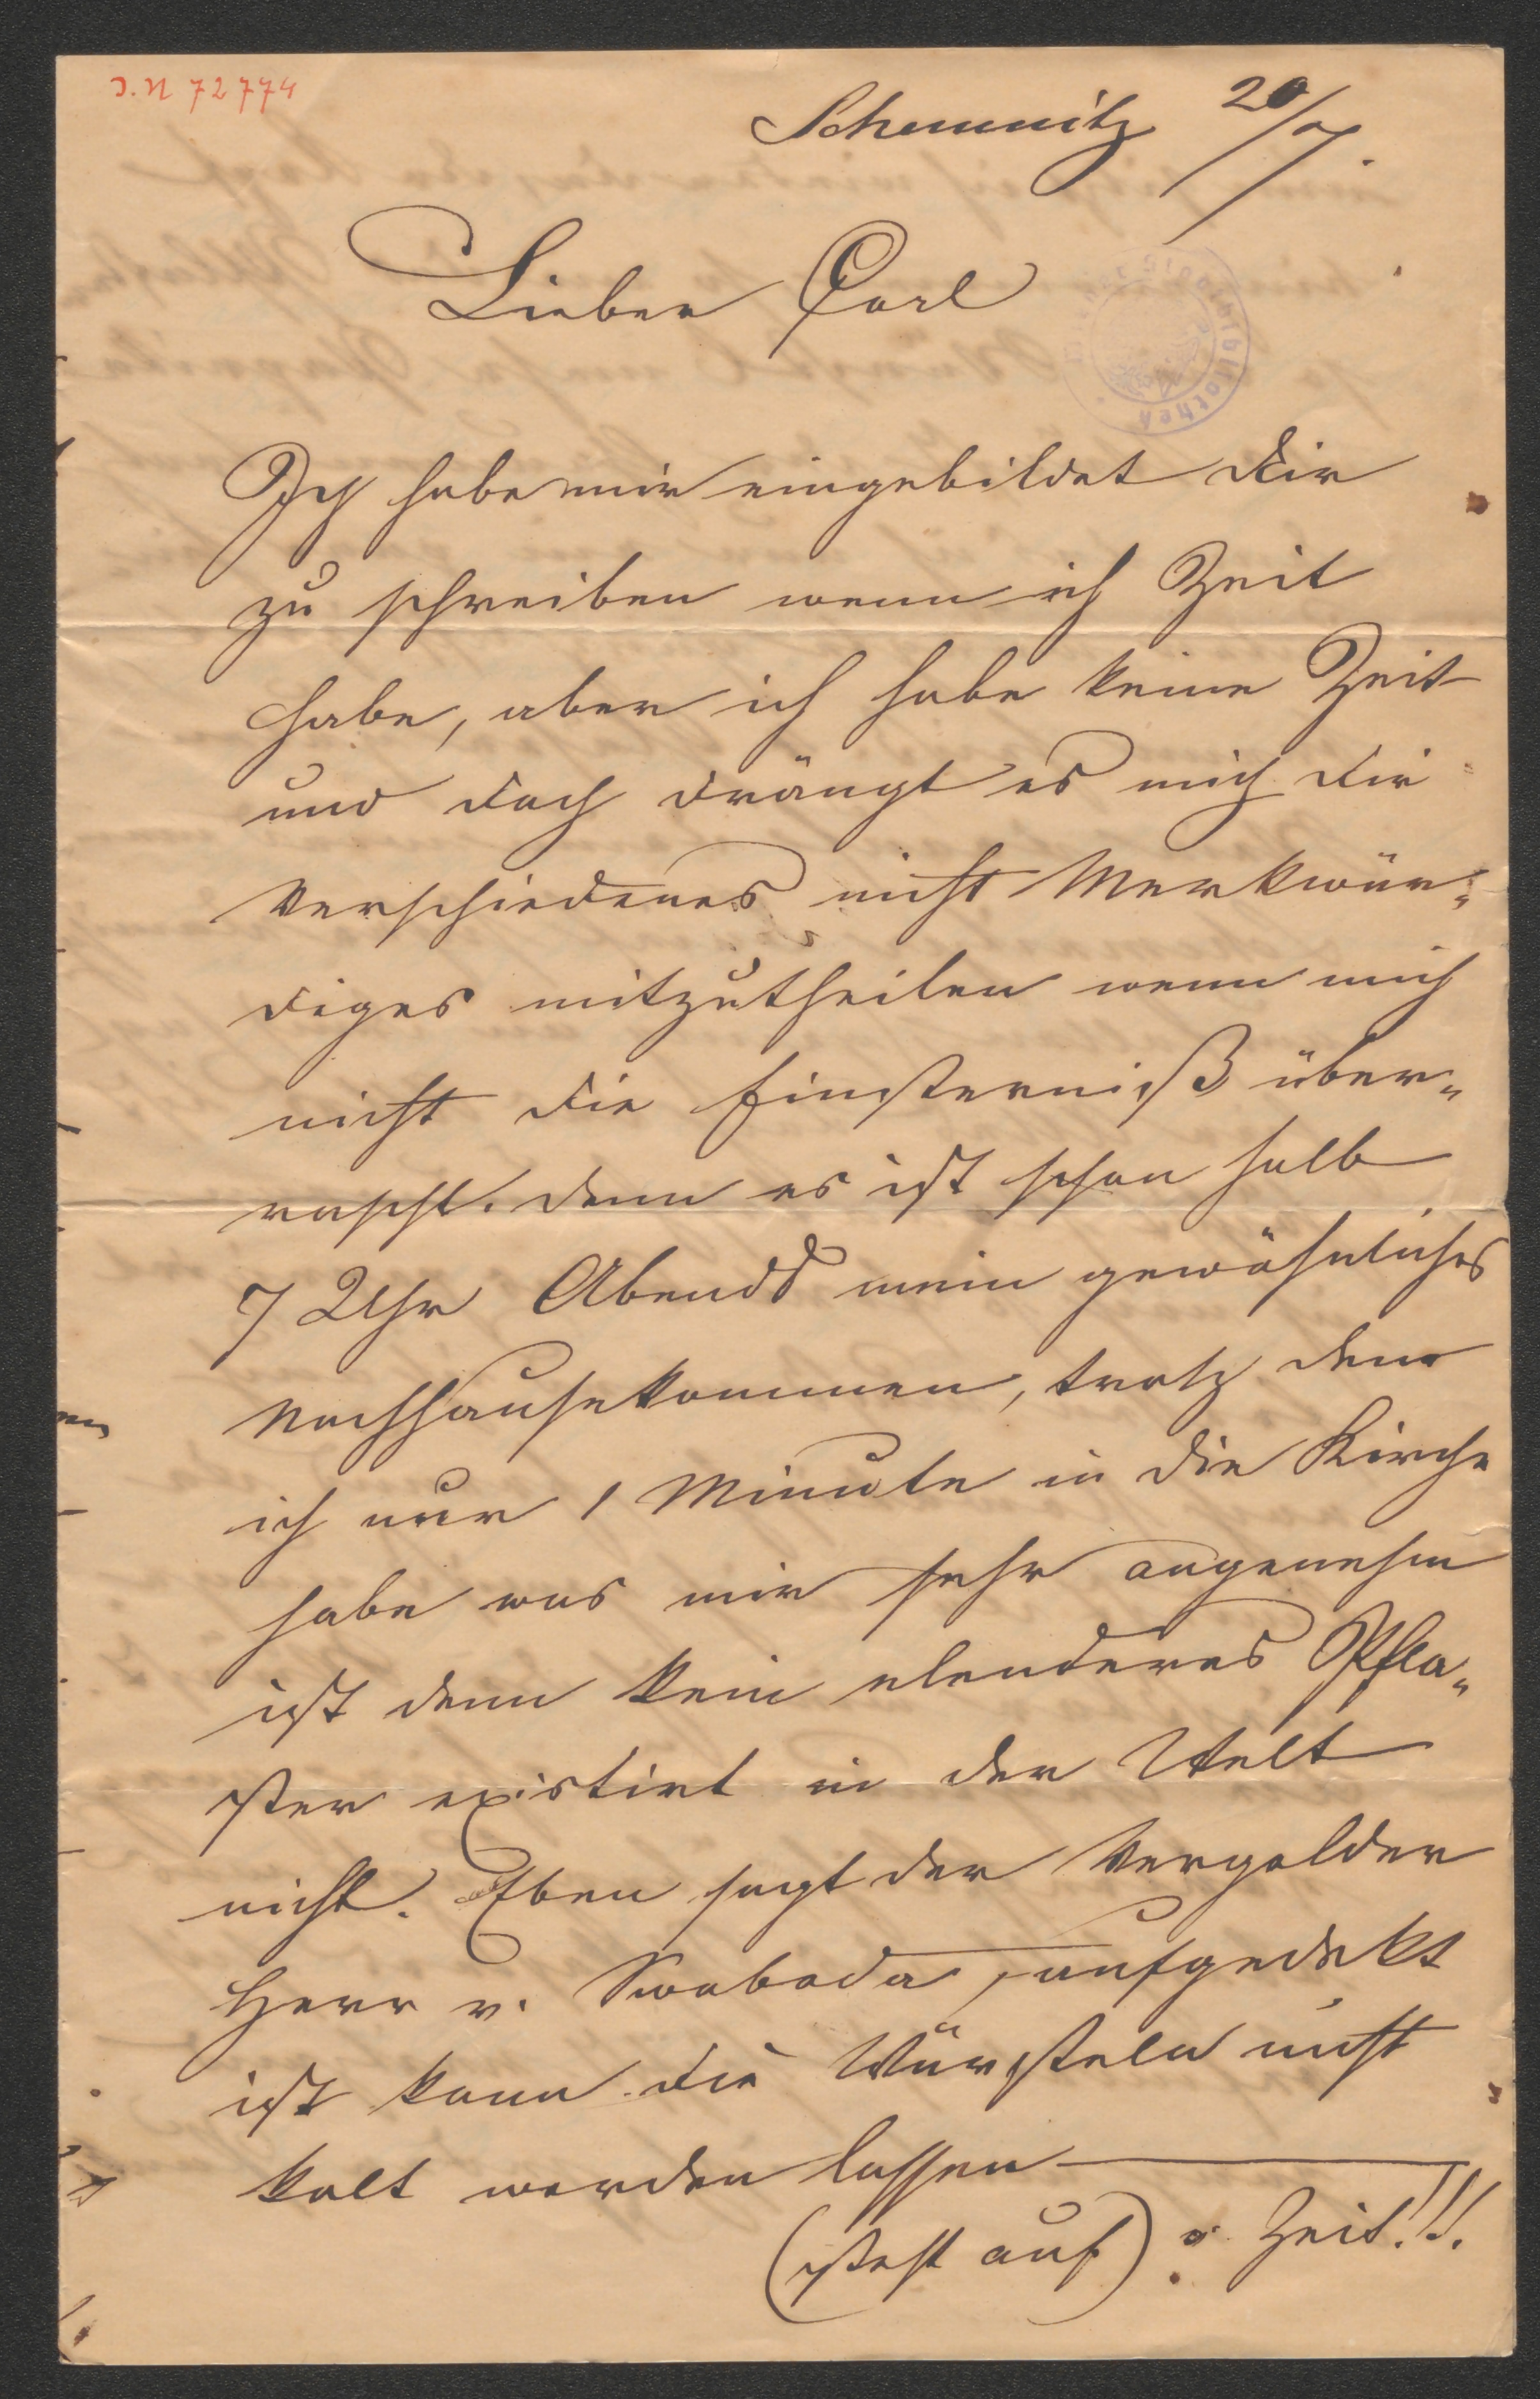 J.N 72774
Schemnitz 20/7.
Lieber Carl
Ich habe mir eingebildet Dir
zu schreiben wenn ich Zeit
habe, aber ich habe keine Zeit
und doch drängt es mich Dir
Verschiedenes nicht Merkwür„
diges mitzutheilen wenn mich
nicht die Finsterniß über„
rascht. denn es ist schon halb
7 Uhr Abends mein gewöhnliches
Nachhausekommen, trotz dem
ich nur 1 Minute in die Kirche
habe was mir sehr angenehm
ist denn kein elenderes Pfla„
ster existirt in der Welt
nicht. Eben sagt der Vergolder
Herr v. Swoboda, aufgedekt
ist kann die Würsteln nicht
kalt werden lassen —
(steht auf) : Zeit.!!!.